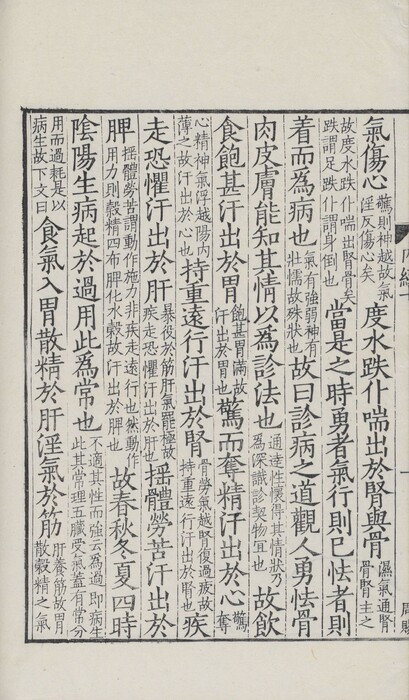 氣傷心驚則神越故氣淫反傷心矣度水跌仆喘出於腎與骨濕氣通腎骨腎主之
故度水跌仆喘出腎骨矣跌謂足跌仆謂身倒也當是之時勇者氣行則已怯者則
着而為病也氣有強弱神有壯懦故殊狀也故曰診病之道觀人勇怯骨
肉皮膚能知其情以為診法也通達性懷得其情狀乃為深識診契物宜也故飲
食飽甚汗出於胃飽甚胃滿故汗出於胃也驚而奪精汗出於心驚奪
心精神氣浮越陽內薄之故汗出於心也持重遠行汗出於腎骨勞氣越腎復過疲故持重遠行汗出於腎也疾
走恐懼汗出於肝暴役於筋肝氣罷極故疾走恐懼汗出於肝也搖體勞苦汗出於
脾搖體勞苦謂動作施力非疾走遠行也然動作用力則穀精四布脾化水穀故汗出於脾也故春秋冬夏四時
陰陽生病起於過用此為常也不適其性而強云為過即病生此其常理五臟受氣蓋有常分
用而過耗是以病生故下文曰食氣入胃散精於肝淫氣於筋肝養筋故胃散穀精之氣